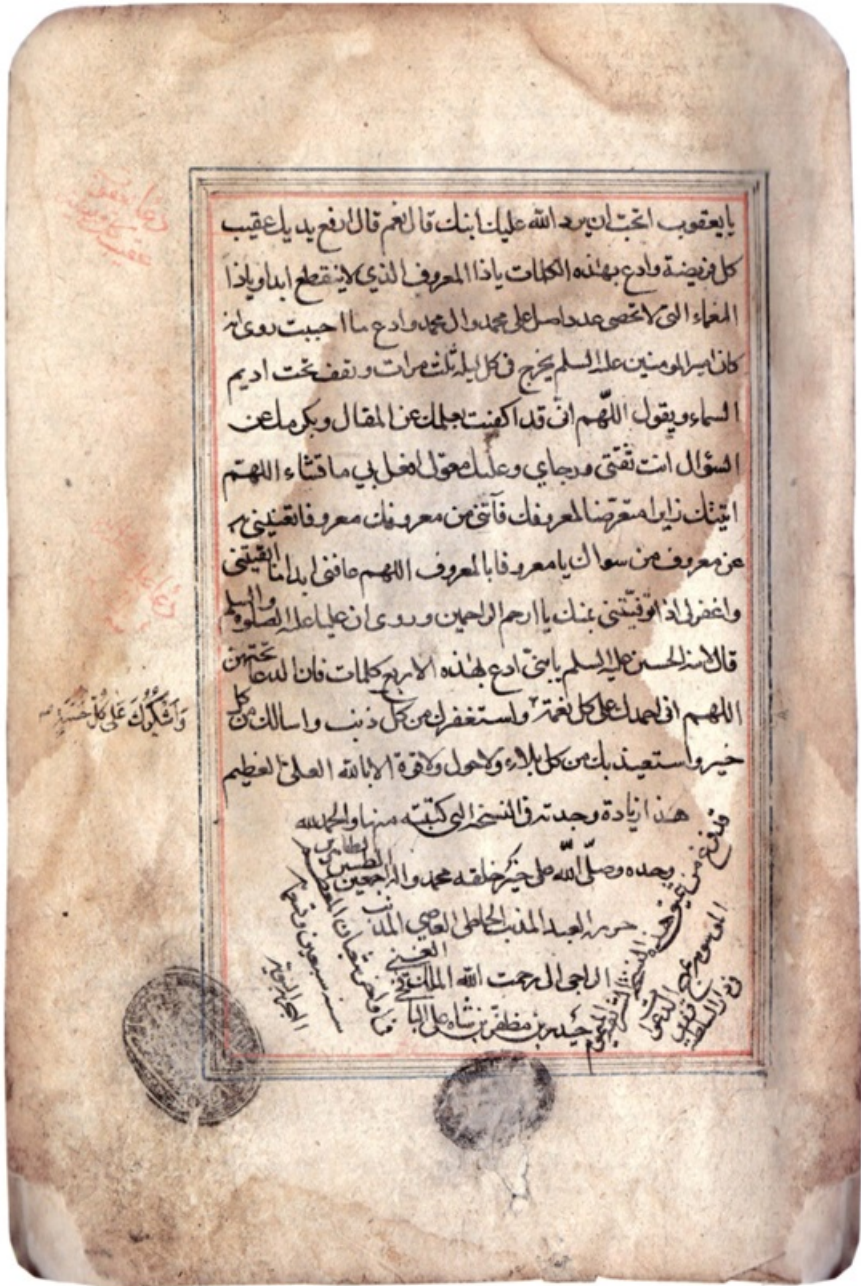 يا يعقوب اتحب ان يرد الله عليك ابنك قال نعم قال ارفع يديك عقيب
كل فريضة وادع بهذه الكلمات ياذا المعروف الذي لا ينقطع ابدا وياذا
النعماء التي لا تحصى عددا صل على محمد وال محمد وادع ما احببت روى ان
كان امير المومنين عليه السلم يخرج في كل ليلة ثلث مرات ويقف تحت اديم
السماء ويقول اللهم اني قد اكتفيت بعلمك عن المقال وبكرمك عن
السؤال انت ثقتي ورجاي وعليك معولى افعل بي ما تشاء اللهم
اتيتك زايرا متعرضا لمعروفك فآتني من معروفك معروفا تغنيني به
عن معروف من سواك يا معروفا بالمعروف اللهم عافني ابدا ما ابقيتني
واغفر لى اذا توفيتني بمنك يا ارحم الراحمين وروى ان عليا عليه الصلوة والسلم
قال لابنه الحسين عليه السلم يا بني ادع بهذه الاربع كلمات فان الدعا تحتهن
اللهم اني احمدك على كل نعمة واستغفرك من كل ذنب واسالك من كل
خير واستعيذ بك من كل بلاء ولا حول ولا قوة الا بالله العلي العظيم
وَاَشْكُرُكَ عَلٰى كُلِّ حَسَنَةٍ
هذا زيادة وجدته في النسخة التي كتبته منها والحمد لله
وحده وصلّى الله على خير خلقه محمد واله اجمعين الطيبين الطاهرين
حرره العبد المذنب الخاطى العاصى
الراجى الى رحمت الله الملك الغنى
حيدر بن مظفر بن شاه على
قد فرغ من هذه النسخة الشريفة
فى اواخر شعبان المعظم
سنه سبعين وتسعمائة
دعاء
عقيب كل فريضة
دعاء